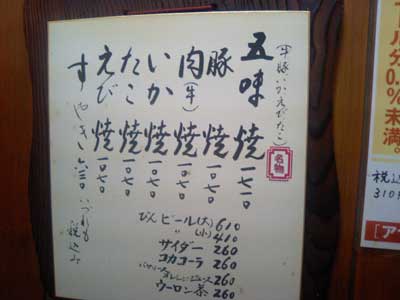 五味焼 一五七〇
(牛豚いかえびたこ)
名物
豚焼 一〇七〇
肉(牛)焼 一〇七〇
いか焼 一〇七〇
たこ焼 一〇七〇
えび焼 一〇七〇
すやき 六三〇 いづれも税込み
びんビール(大) 610
〃 (小) 410
サイダー 260
コカコーラ 260
オレンジジュース 260
ウーロン茶 260
ール分
0.
%未
満。
税込
310
[ア